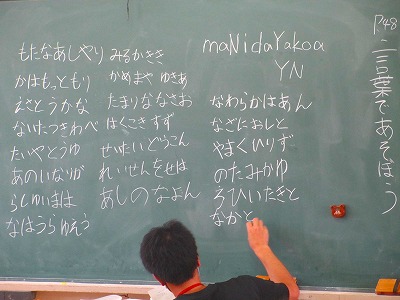 P.48
言葉であそぼう
もたなあしやり
かはもっともり
えさとうかな
ないたつきわべ
たいやとうゆ
あのいなりが
らしゆいまは
なはうらゆえう
みるかきき
かめまや ゆきあ
たまりななさお
はくこきすず
せいたいどうこん
れいせんをせは
あしのなよん
maNidaYakoa
YN
なわらかはあん
なざにおしと
やまくいりず
のたみかゆ
ろひいたきと
なかと